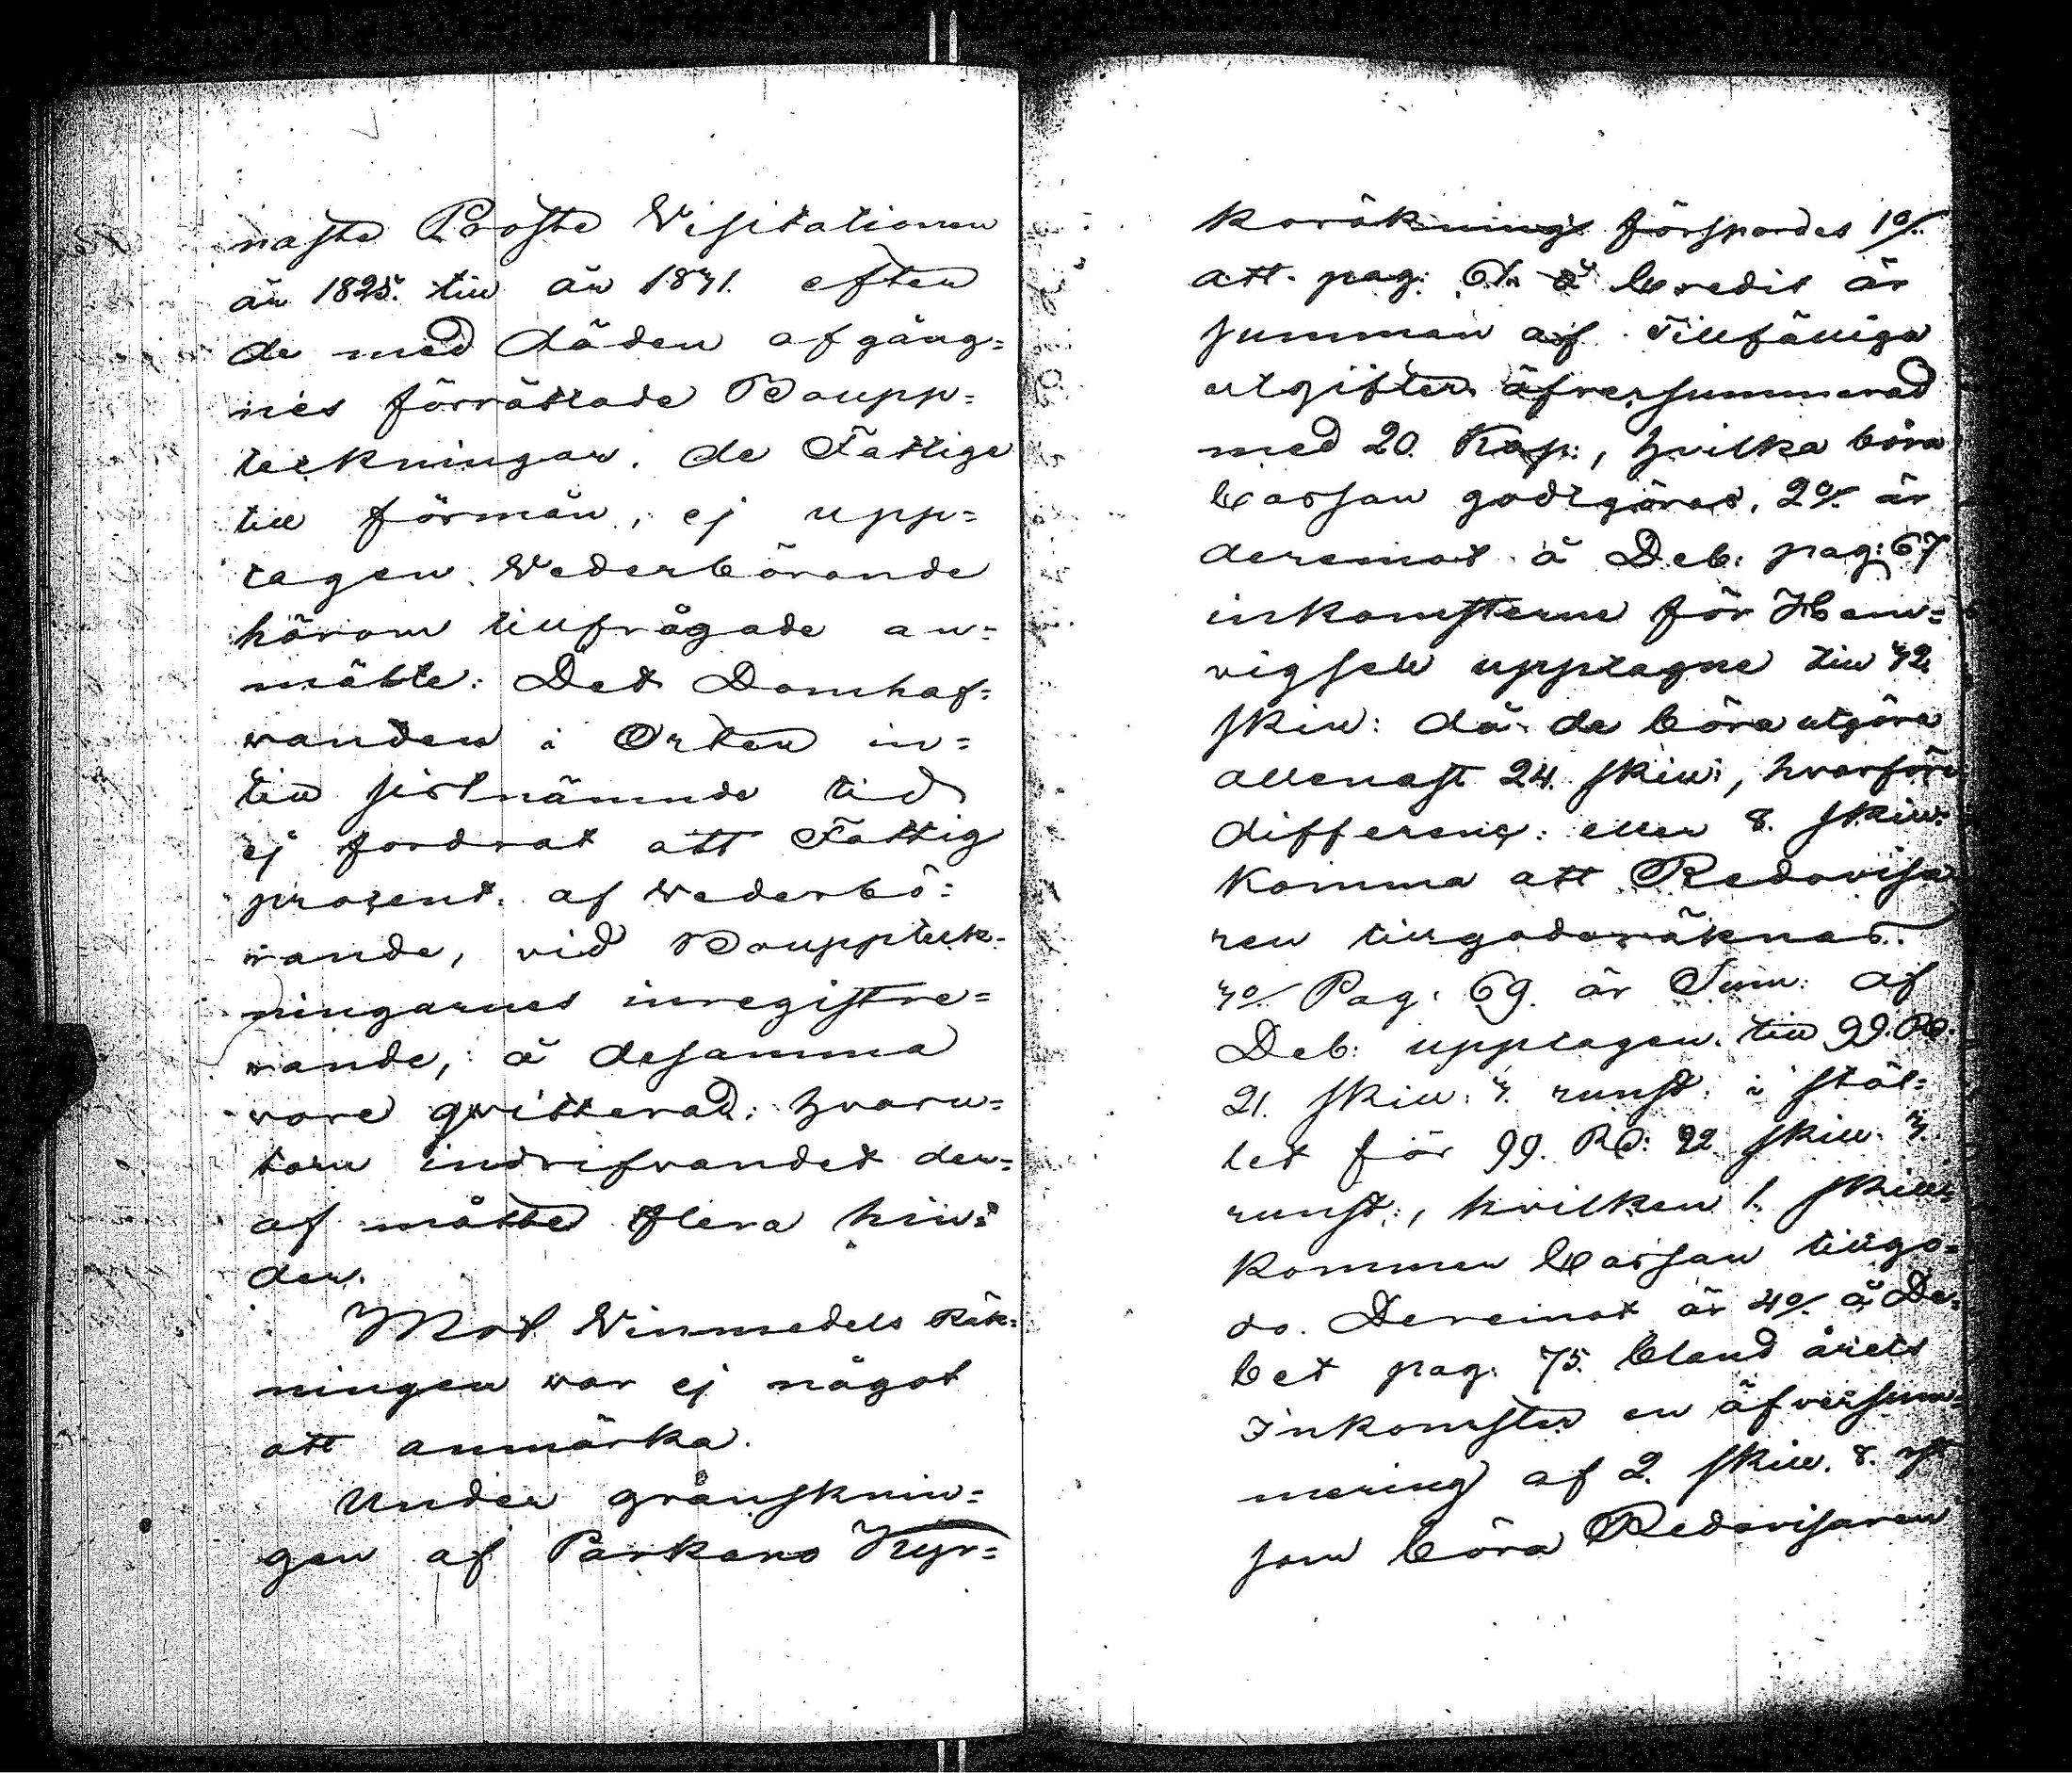 naste Proste Visitationen
år 1825. till år 1831. efter
de med döden afgång=
nes förrättade Boupp=
teckningar. de Fattige
till förmån, ej upp=
tagen. Vederbörande
härom tillfrågade an=
mälte: Det Domhaf=
vanden i Orten in=
till sistnämnde tid
ej fordrat att Fattig
procent. af vederbö=
rande, vid Boupptek=
ningarnes inregistre=
rande, å desamma
vore qvitterad: hvaru=
tom indrifvandet der=
af mötte flera hin=
der.
Mot Vinmedels Räk=
ningen var ej något
att anmärka.
Under gransknin=
gen af Parkano Kyr=
koräkning förspordes 1o/.
att pag: 61. å Credit är
summan af Tillfälliga
utgifter öfversummerad
med 20. Kop:, hvilka böra
Cassan godtgöras. 2o/. är
deremot å Deb: pag: 67
inkomsterne för Hem=
vigsel upptagne till 32
skill: då de böra utgöra
allenast 24. skill:, hvarföre
differenç: eller 8. skill:
komma att Redovisa
ren tillgodoräknas.
3o/. Pag: 69. är Sum: af
Deb: upptagen till 99. RD.
21. skill: 3. runst: i stäl=
let för 99. RD: 22 skill: 3.
runst:, hvilken 1. skill:
kommer Cassan tillgo=
do. Deremot är 4o/. å De=
bet pag: 75. bland årets
Inkomster en öfversum=
mering af 2. skill. 8. rst
som böra Redovisaren